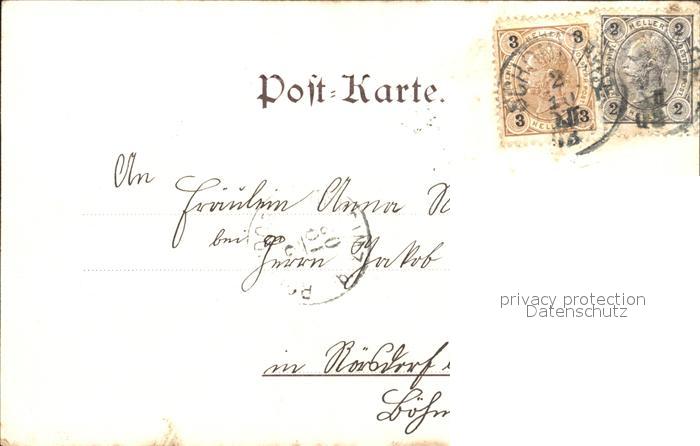 Post-Karte.
3 HELLER 3
3 HELLER 3
2 HELLER 2
2 2
An
Fräulein Anna
bei
Herrn Jakob
in Rösdorf
Böhm
privacy protection
Datenschutz